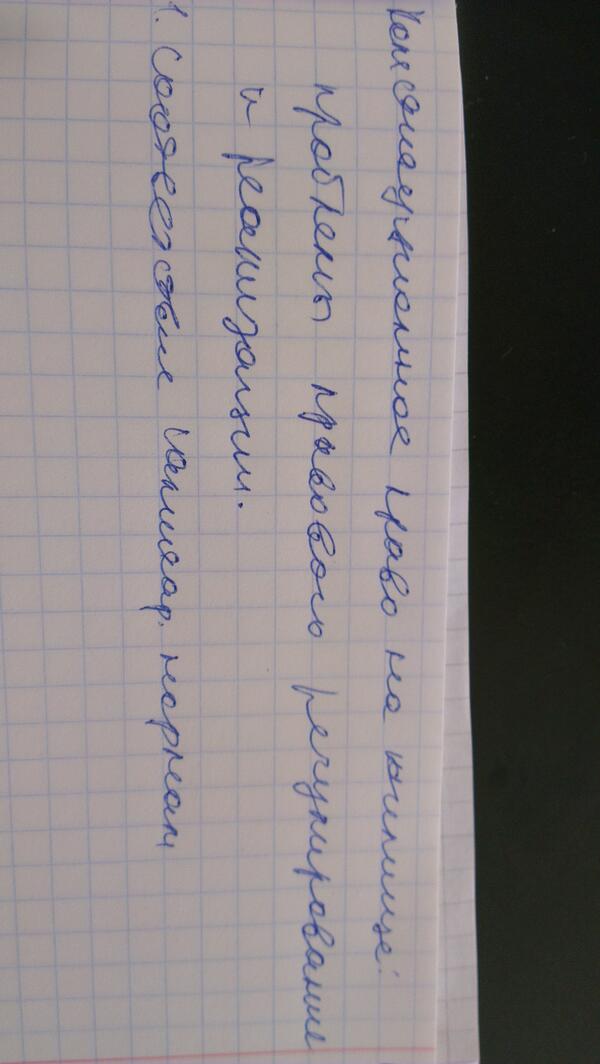 Конституционное право на жилище:
проблемы правового регулирование
и реализации.
1. Соответствие санитар. нормам